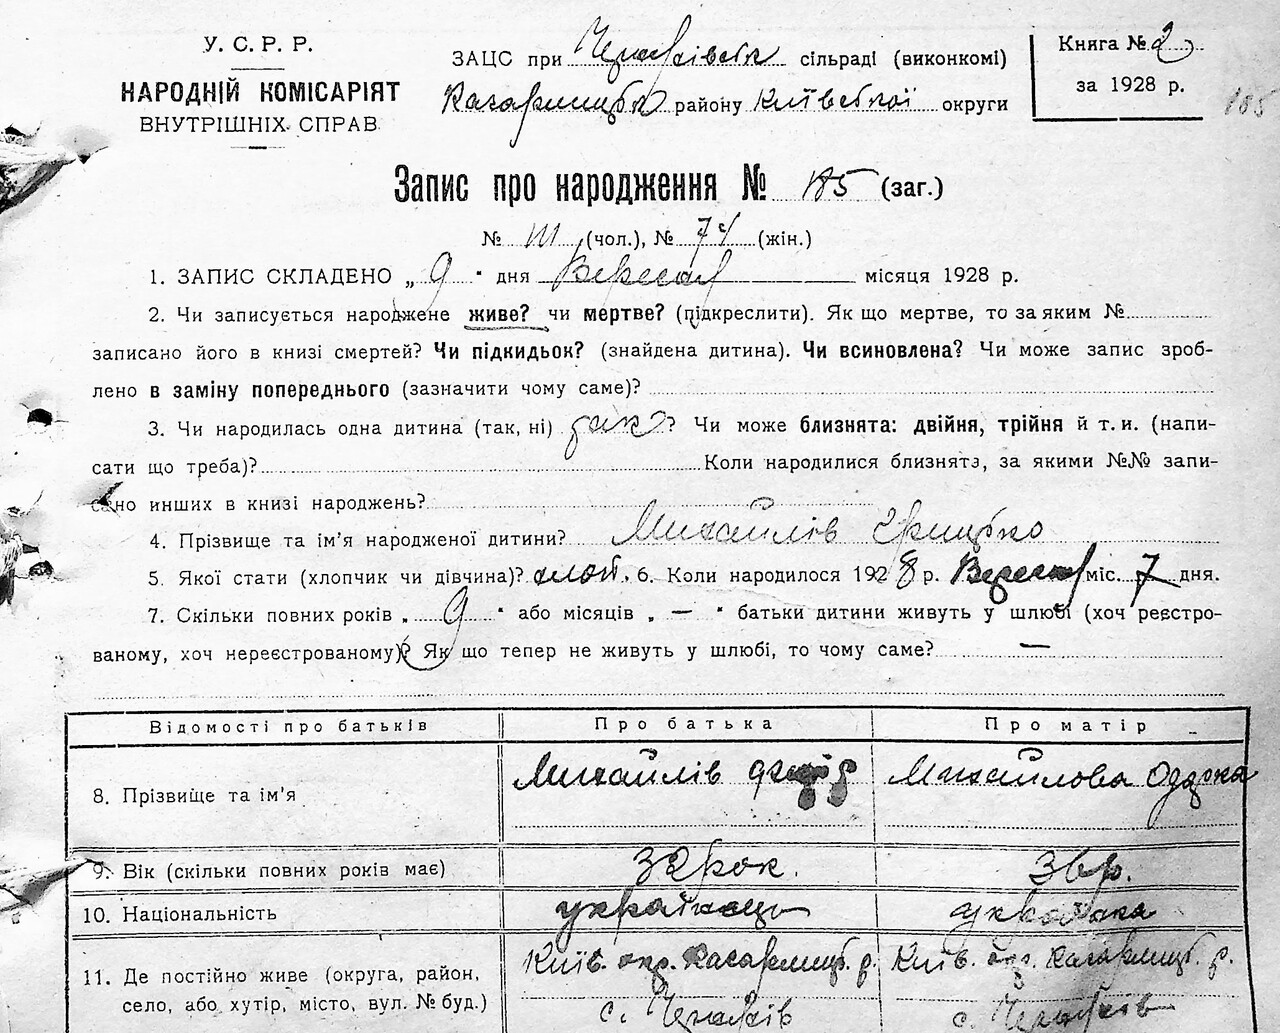 У. С. Р. Р.
НАРОДНІЙ КОМІСАРІЯТ
ВНУТРІШНІХ СПРАВ
ЗАЦС при сільраді (виконкомі)
Кагарлицьк району Київської округи
Книга № 2
за 1928 р.
185
Запис про народження № 185 (заг.)
№ 111 (чол.), № 74 (жін.)
1. ЗАПИС СКЛАДЕНО „ 9 " дня Вересня місяця 1928 р.
2. Чи записується народжене живе? чи мертве? (підкреслити). Як що мертве, то за яким №
записано його в книзі смертей? Чи підкидьок? (знайдена дитина). Чи всиновлена? Чи може запис зроб-
лено в заміну попереднього (зазначити чому саме)?
3. Чи народилась одна дитина (так, ні) так? Чи може близнята: двійня, трійня й т. и. (напи-
сати що треба)? Коли народилися близнята, за якими №№ запи-
сано инших в книзі народжень?
4. Прізвище та ім'я народженої дитини? Михайлів Грицько
5. Якої стати (хлопчик чи дівчина)? 6. Коли народилося 1928 р. Вересня міс. 7 дня.
7. Скільки повних років „ 9 " або місяців „ — " батьки дитини живуть у шлюбі (хоч реєстро-
ваному, хоч нереєстрованому)? Як що тепер не живуть у шлюбі, то чому саме? —
Відомості про батьків Про батька Про матір
8. Прізвище та ім'я Михайлів Михайлова Одарка
9. Вік (скільки повних років має) 32 рок. р.
10. Національність українець українка
11. Де постійно живе (округа, район, Київ. окр. Кагарлицьк. р. Київ. окр. Кагарлицьк. р.
село, або хутір, місто, вул. № буд.) с. с.